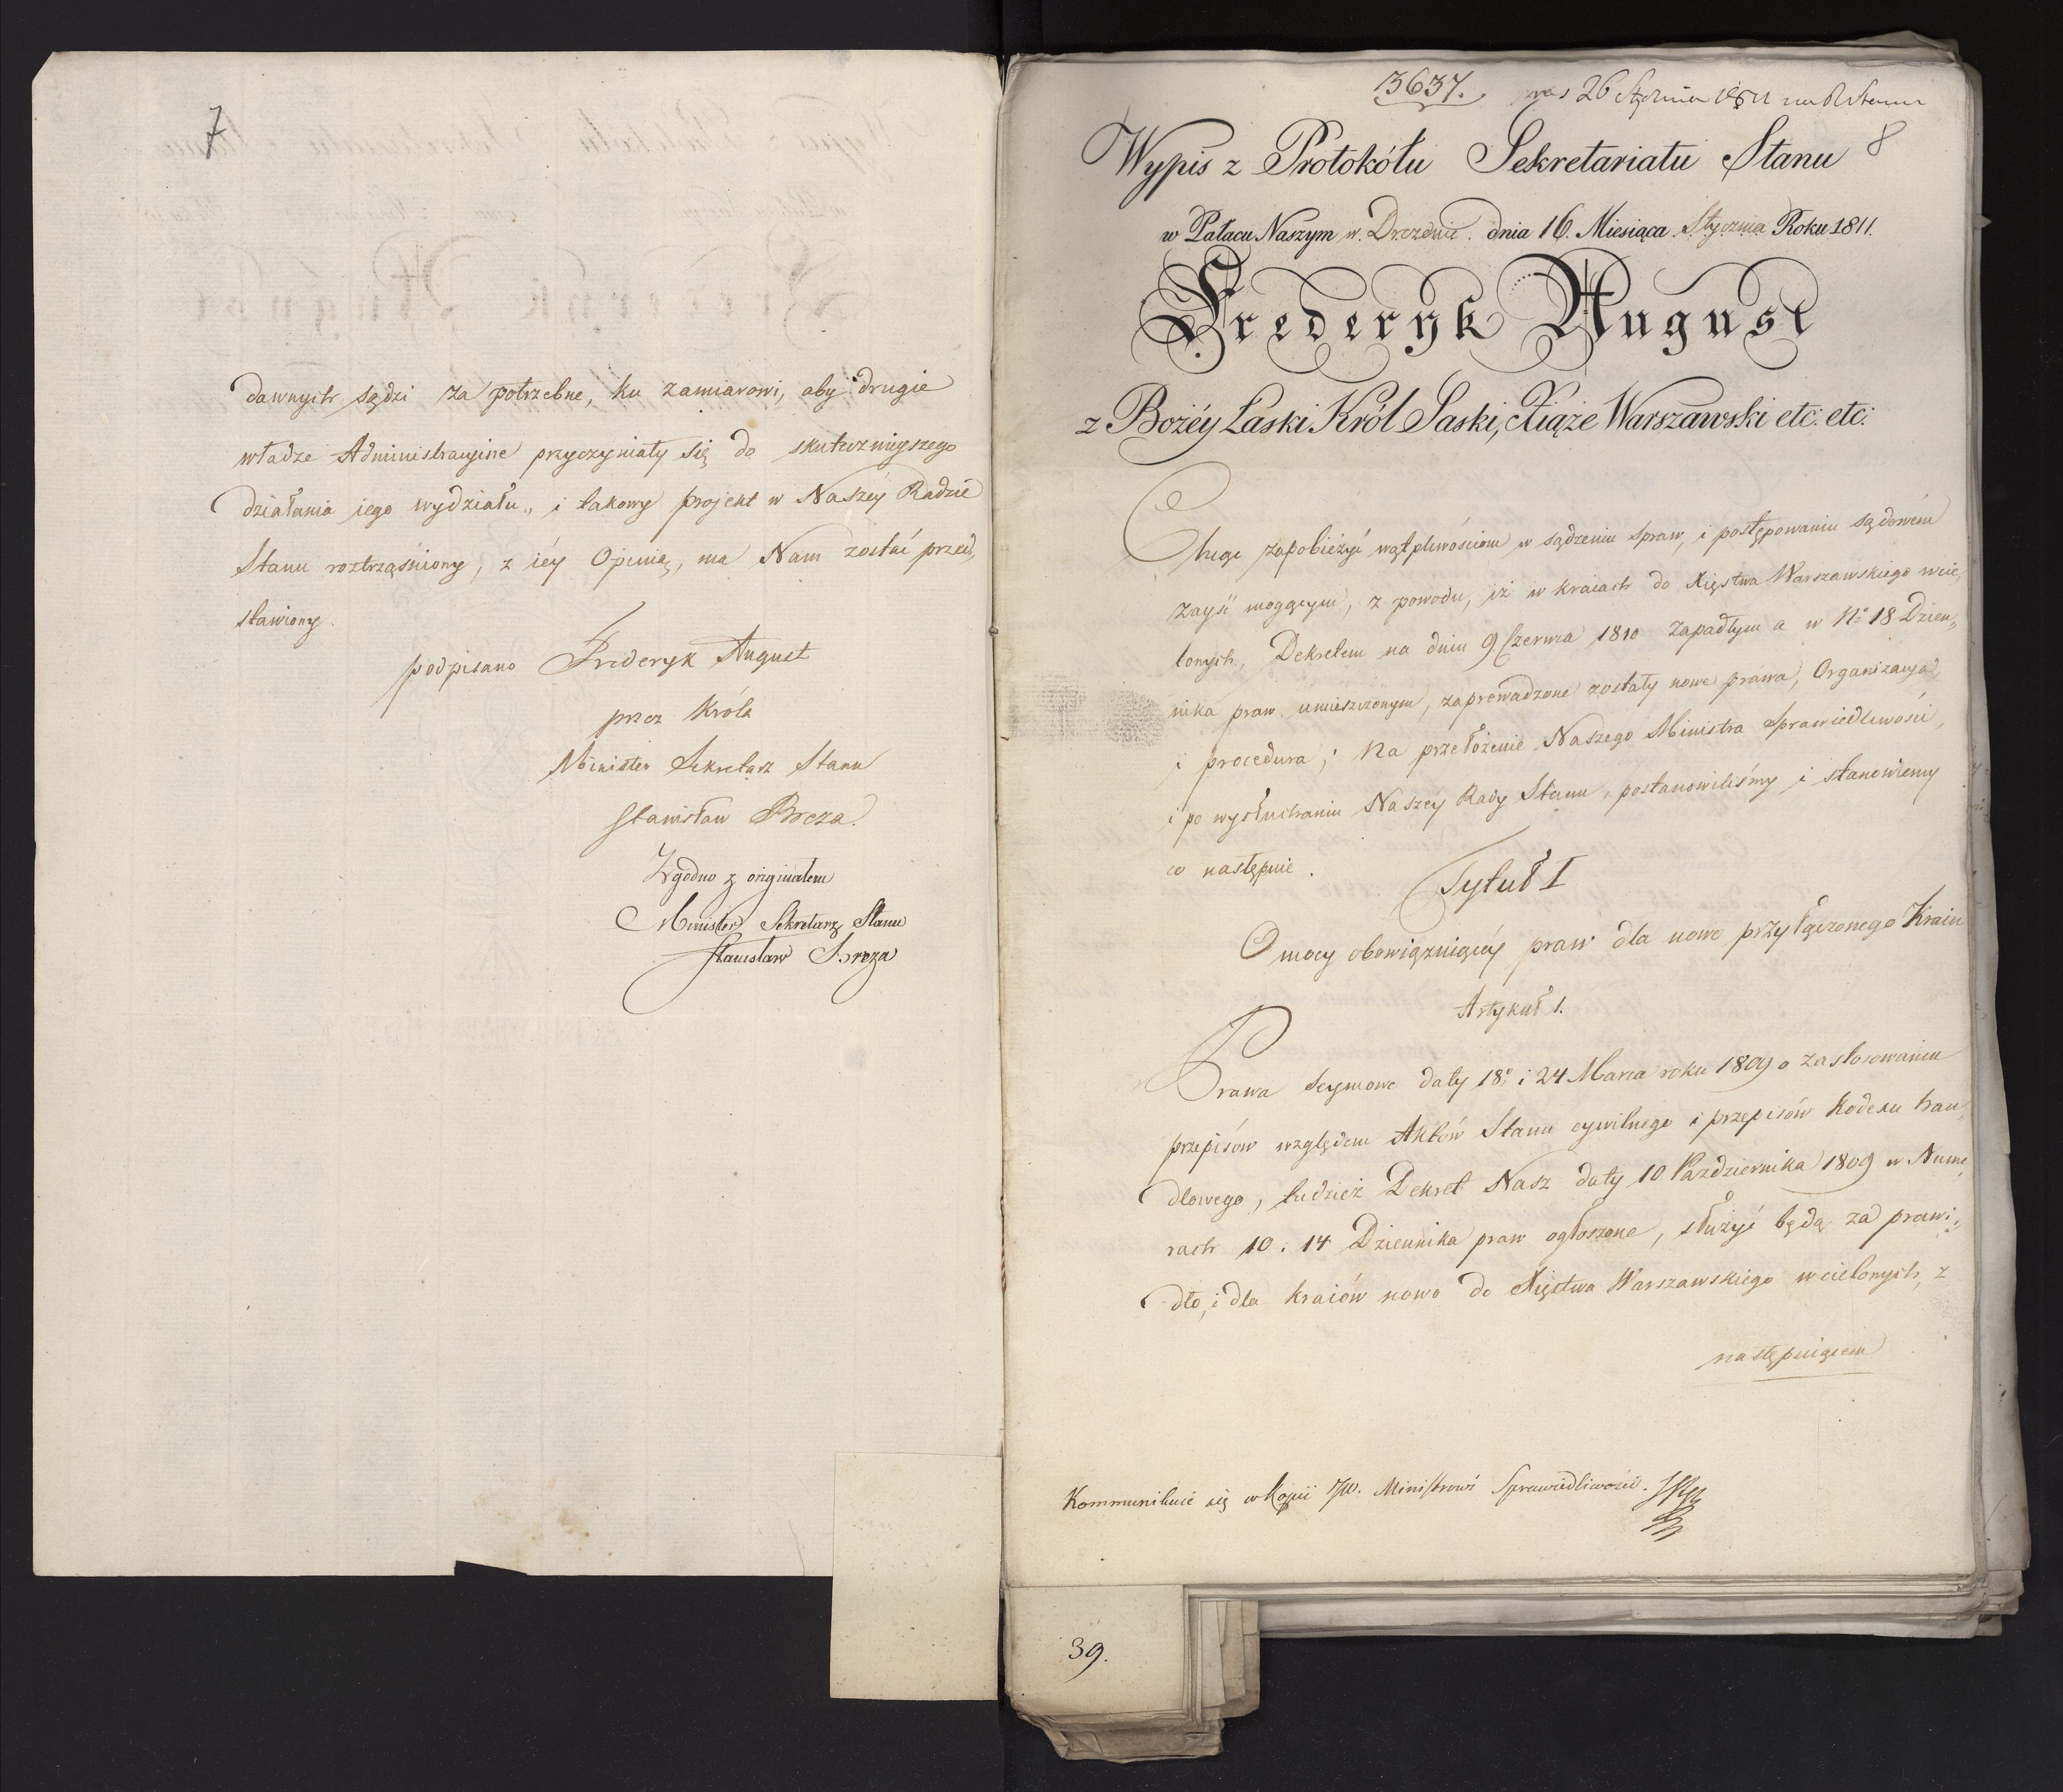 7
dawnych sądzi za potrzebne, ku zamiarowi, aby drugie
władze Administracyine przyczyniały się do skutecznieyszego
działania iego wydziału, i takowy projekt w Naszéy Radzie
Stanu roztrząśniony, z iéy Opinią, ma Nam zostać przed„
stawiony.
podpisano Frideryk August
przez Króla
Minister Sekretarz Stanu
Stanisław Breza.
Zgodno z originałem
Minister Sekretarz Stanu
Stanisław Breza
3637. 26 Stycznia 1811
8
Wypis z Protokółu Sekretariatu Stanu
w Pałacu Naszym w. Dreznie. dnia 16. Miesiąca Stycznia Roku 1811.
Frederyk August
z Bożéy Łaski Król Saski, Xiąże Warszawski etc: etc:
Chcąc zapobieżyć wątpliwościom w sądzeniu spraw, i postępowaniu sądowém
zayść mogącym, z powodu, iż w kraiach do Xięstwa Warszawskiego wcie„
lonych, Dekretem na dniu 9 Czerwca 1810 zapadłym a w No 18 Dzien„
nika praw umieszczonym, zaprowadzone zostały nowe prawa, Organizacya
i procedura; Na przełożenie Naszego Ministra Sprawiedliwości,
i po wysłuchaniu Naszéy Rady Stanu, postanowiliśmy i stanowiemy
co następuie.
Tytuł I
O mocy obowięzuiącéy praw dla nowo przyłączonego Kraiu
Artykuł 1.
Prawa Seymowe daty 18o i 24 Marca roku 1809 o zastosowaniu
przepisów względem Aktów Stanu cywilnego i przepisów Kodexu han„
dlowego, tudzież Dekret Nasz daty 10 Października 1809 w Nume„
rach 10 i 14 Dziennika praw ogłoszone, służyć będą za prawi„
dło, i dla kraiów nowo do Xięstwa Warszawskiego wcielonych, z
następuiącem
Kommunikuie się w Kopii JW. Ministrowi Sprawiedliwości.
39.